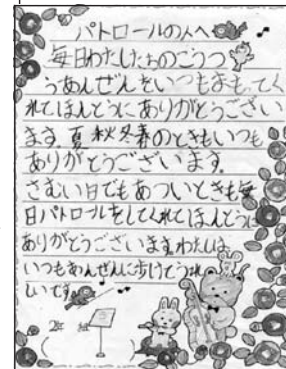 パトロールの人へ
毎日わたしたちのこうつ
うあんぜんをいつもまもってく
れてほんとうにありがとうござい
ます。夏秋冬春のときもいつも
ありがとうございます。
さむい日でもあついときも毎
日パトロールをしてくれてほんとうに
ありがとうございます。わたしは
いつもあんぜんに歩けてうれ
しいです。
2年 組